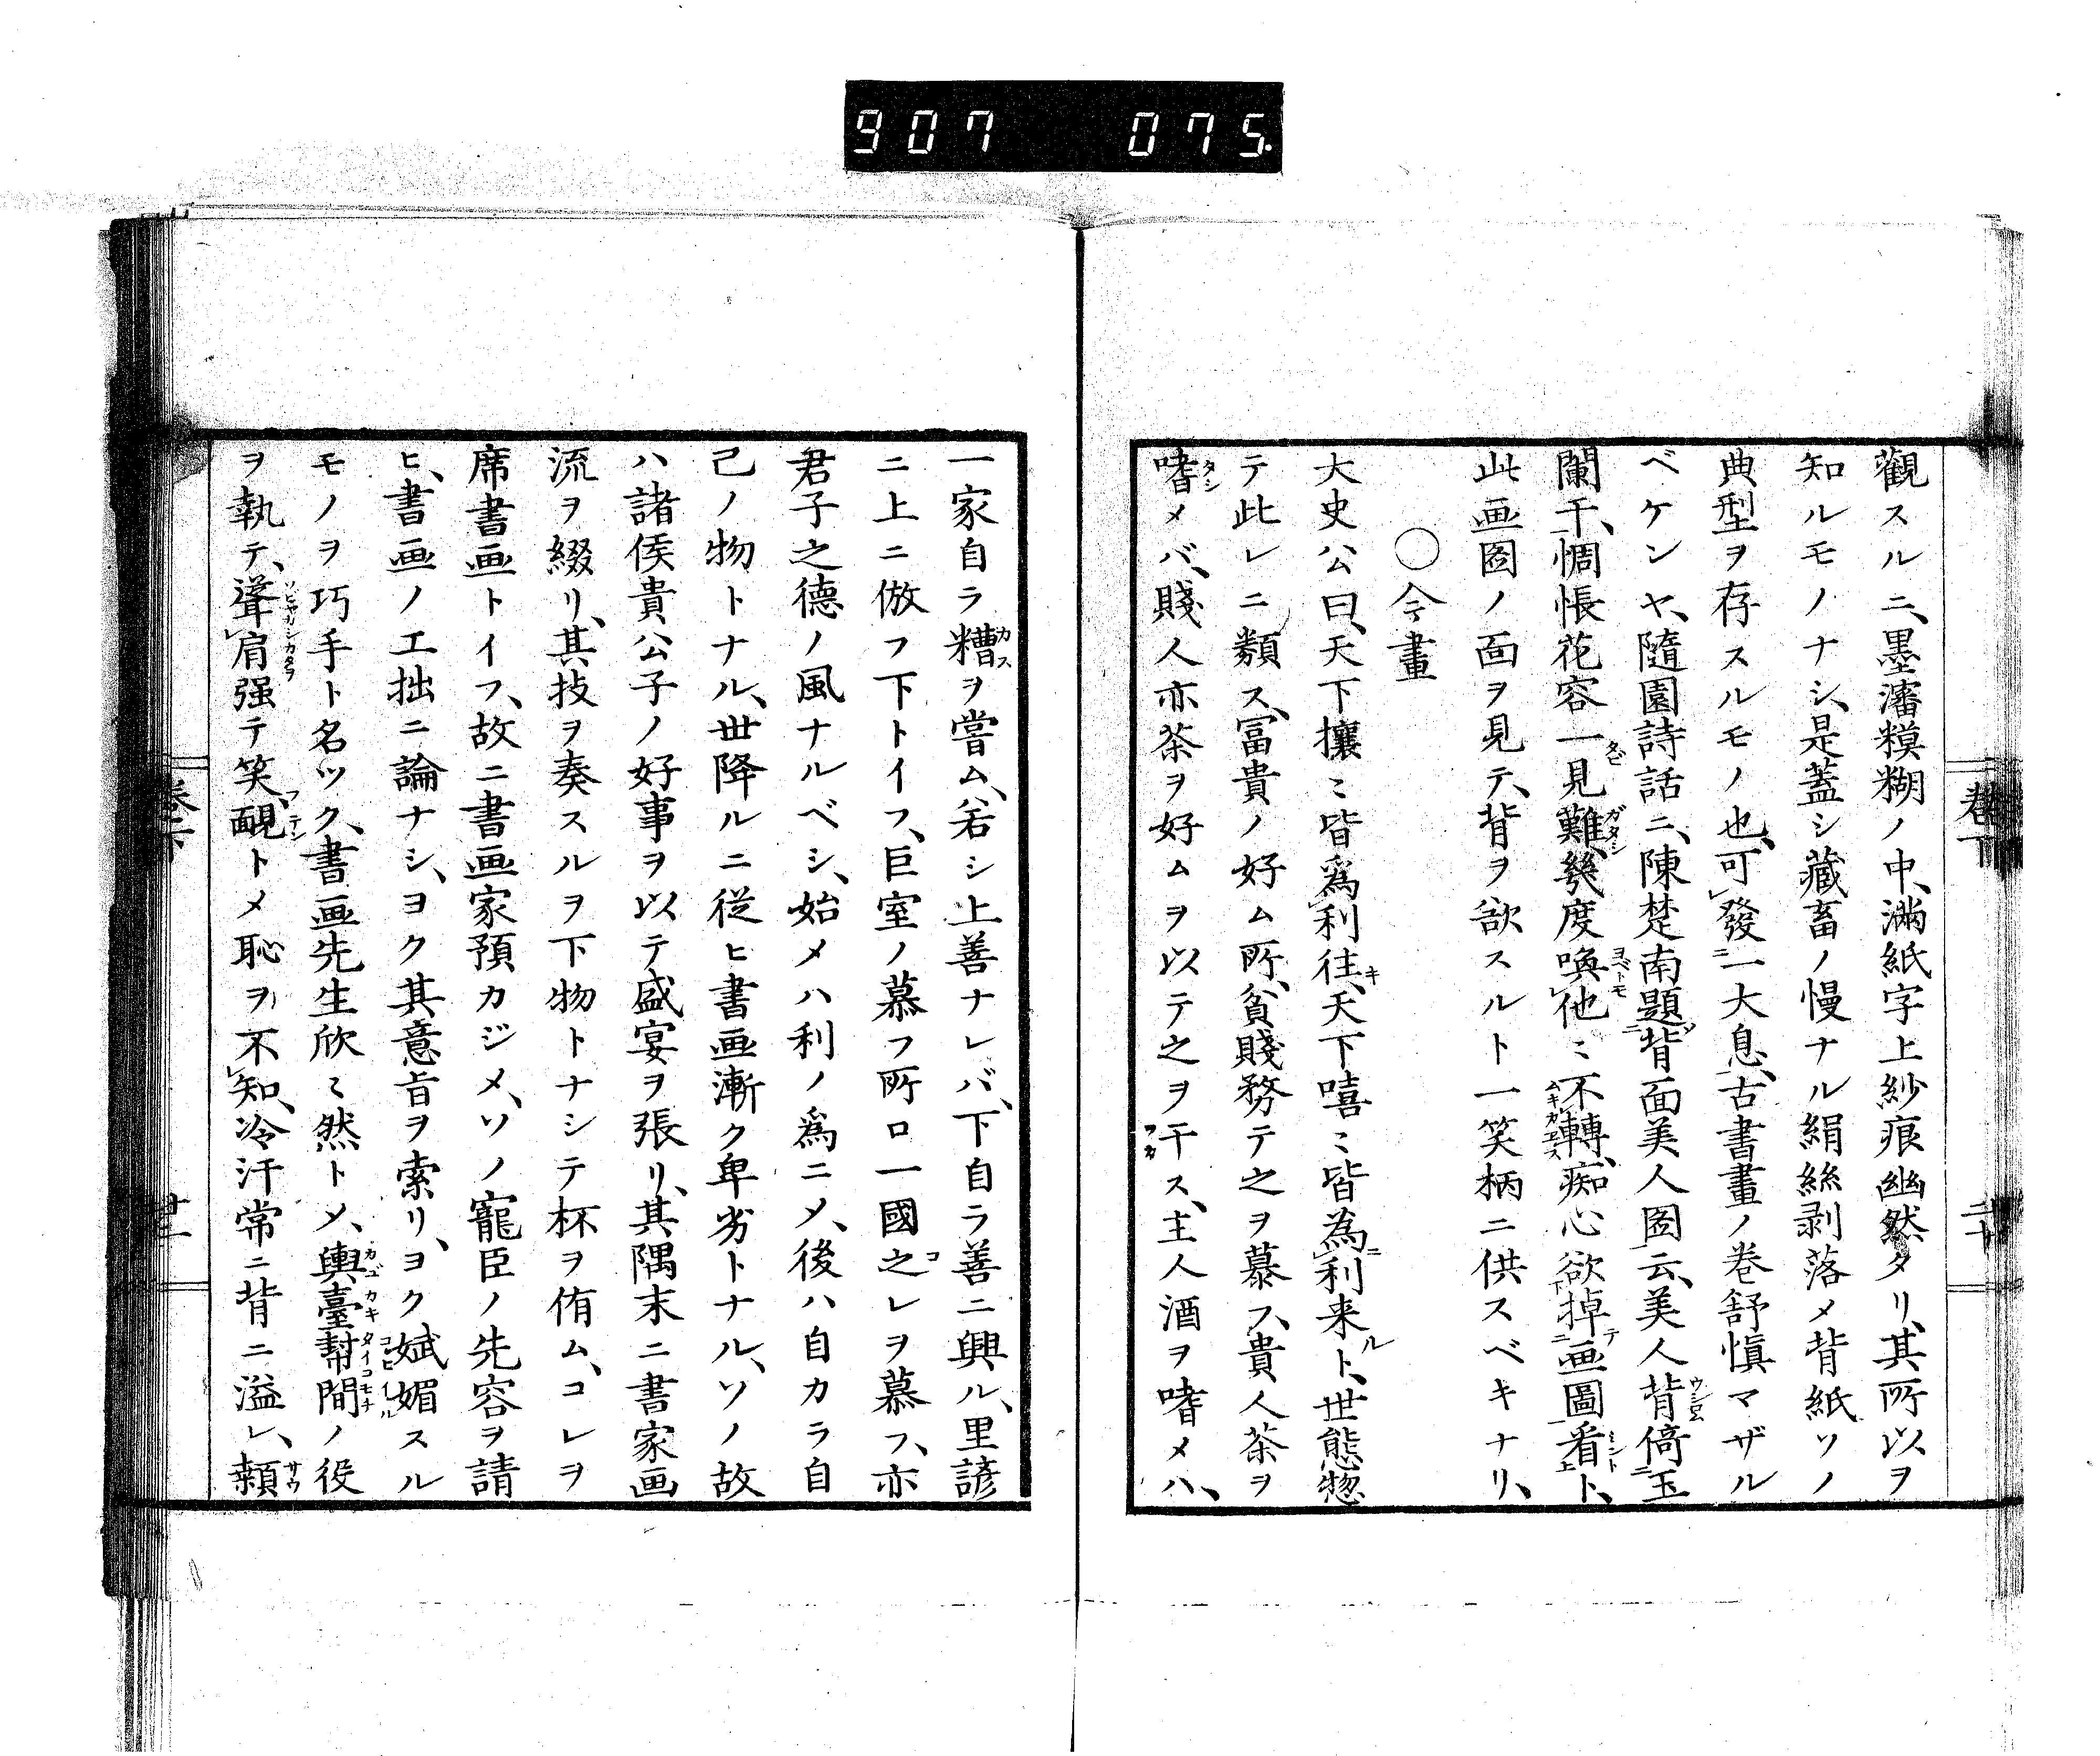 907 075.
觀スルニ、墨瀋糢糊ノ中、滿紙字上紗痕幽然タリ、其所以ヲ
知ルモノナシ、是蓋シ藏畜ノ慢ナル絹絲剥落メ背紙ソノ
典型ヲ存スルモノ也、可發一大息、古書畫ノ卷舒愼マザル
ベケンヤ、隨園詩話ニ、陳楚南題背面美人圖云、美人背倚玉
闌干、惆悵花容一見難、幾度喚他ミ不轉、痴心欲掉画圖看ト、
此画圖ノ面ヲ見テ、背ヲ欲スルト一笑柄ニ供スベキナリ、
〇今畫
大史公曰、天下攘ミ皆爲利往、天下嘻ミ皆為利来ト、世態惣
テ此レニ類ス、冨貴ノ好ム所、貧賤務テ之ヲ慕フ、貴人茶ヲ
嗜メバ、賤人亦茶ヲ好ムヲ以テ之ヲ干ス、主人酒ヲ嗜メハ、
卷下
二十
一家自ラ糟ヲ嘗ム、若シ上善ナレバ、下自ラ善ニ興ル、里諺
ニ上ニ倣フ下トイフ、巨室ノ慕フ所ロ一國之レヲ慕フ、亦
君子之德ノ風ナルベシ、始メハ利ノ爲ニメ、後ハ自カラ自
己ノ物トナル、世降ルニ從ヒ書画漸ク卑劣トナル、ソノ故
ハ諸侯貴公子ノ好事ヲ以テ盛宴ヲ張リ、其隅末ニ書家画
流ヲ綴リ、其技ヲ奏スルヲ下物トナシテ杯ヲ侑ム、コレヲ
席書画トイフ、故ニ書画家預カジメ、ソノ寵臣ノ先容ヲ請
ヒ、書画ノ工拙ニ論ナシ、ヨク其意旨ヲ索リ、ヨク斌媚スル
モノヲ巧手ト名ツク、書画先生欣ミ然トメ、輿臺幇間ノ役
ヲ執テ、聳肩强テ笑、靦トメ恥ヲ不知、冷汗常ニ背ニ溢レ、顙
卷下
廿一